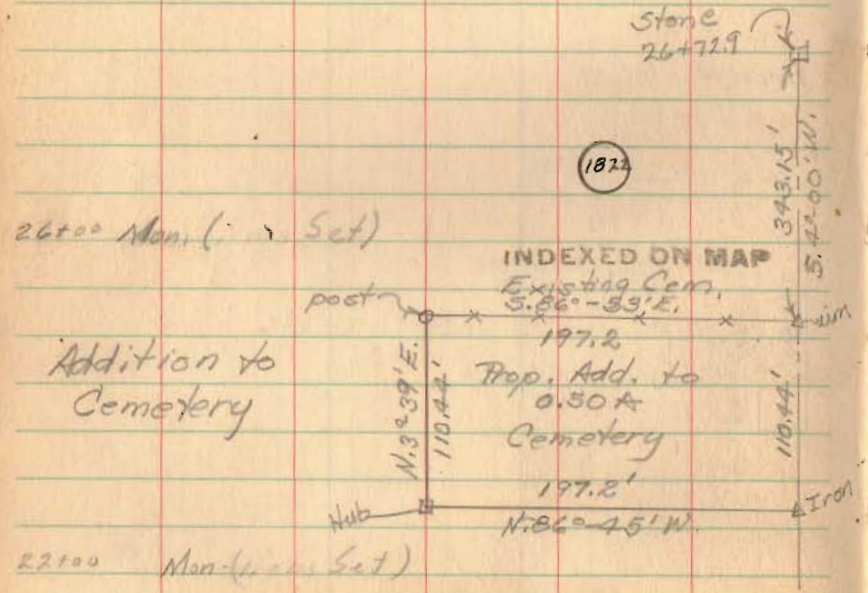 Stone
26+72.9
1822
343.15'
S.4°00'W.
26+00 Mon. ( Set)
INDEXED ON MAP
Existing Cem.
S.86°-53'E.
post
197.2
Addition to
Cemetery
N.3°39'E.
110.44'
Prop. Add. to
0.50 A
Cemetery
110.44'
197.2'
Iron
Hub
N.86°-45'W.
22+00 Mon. ( Set)